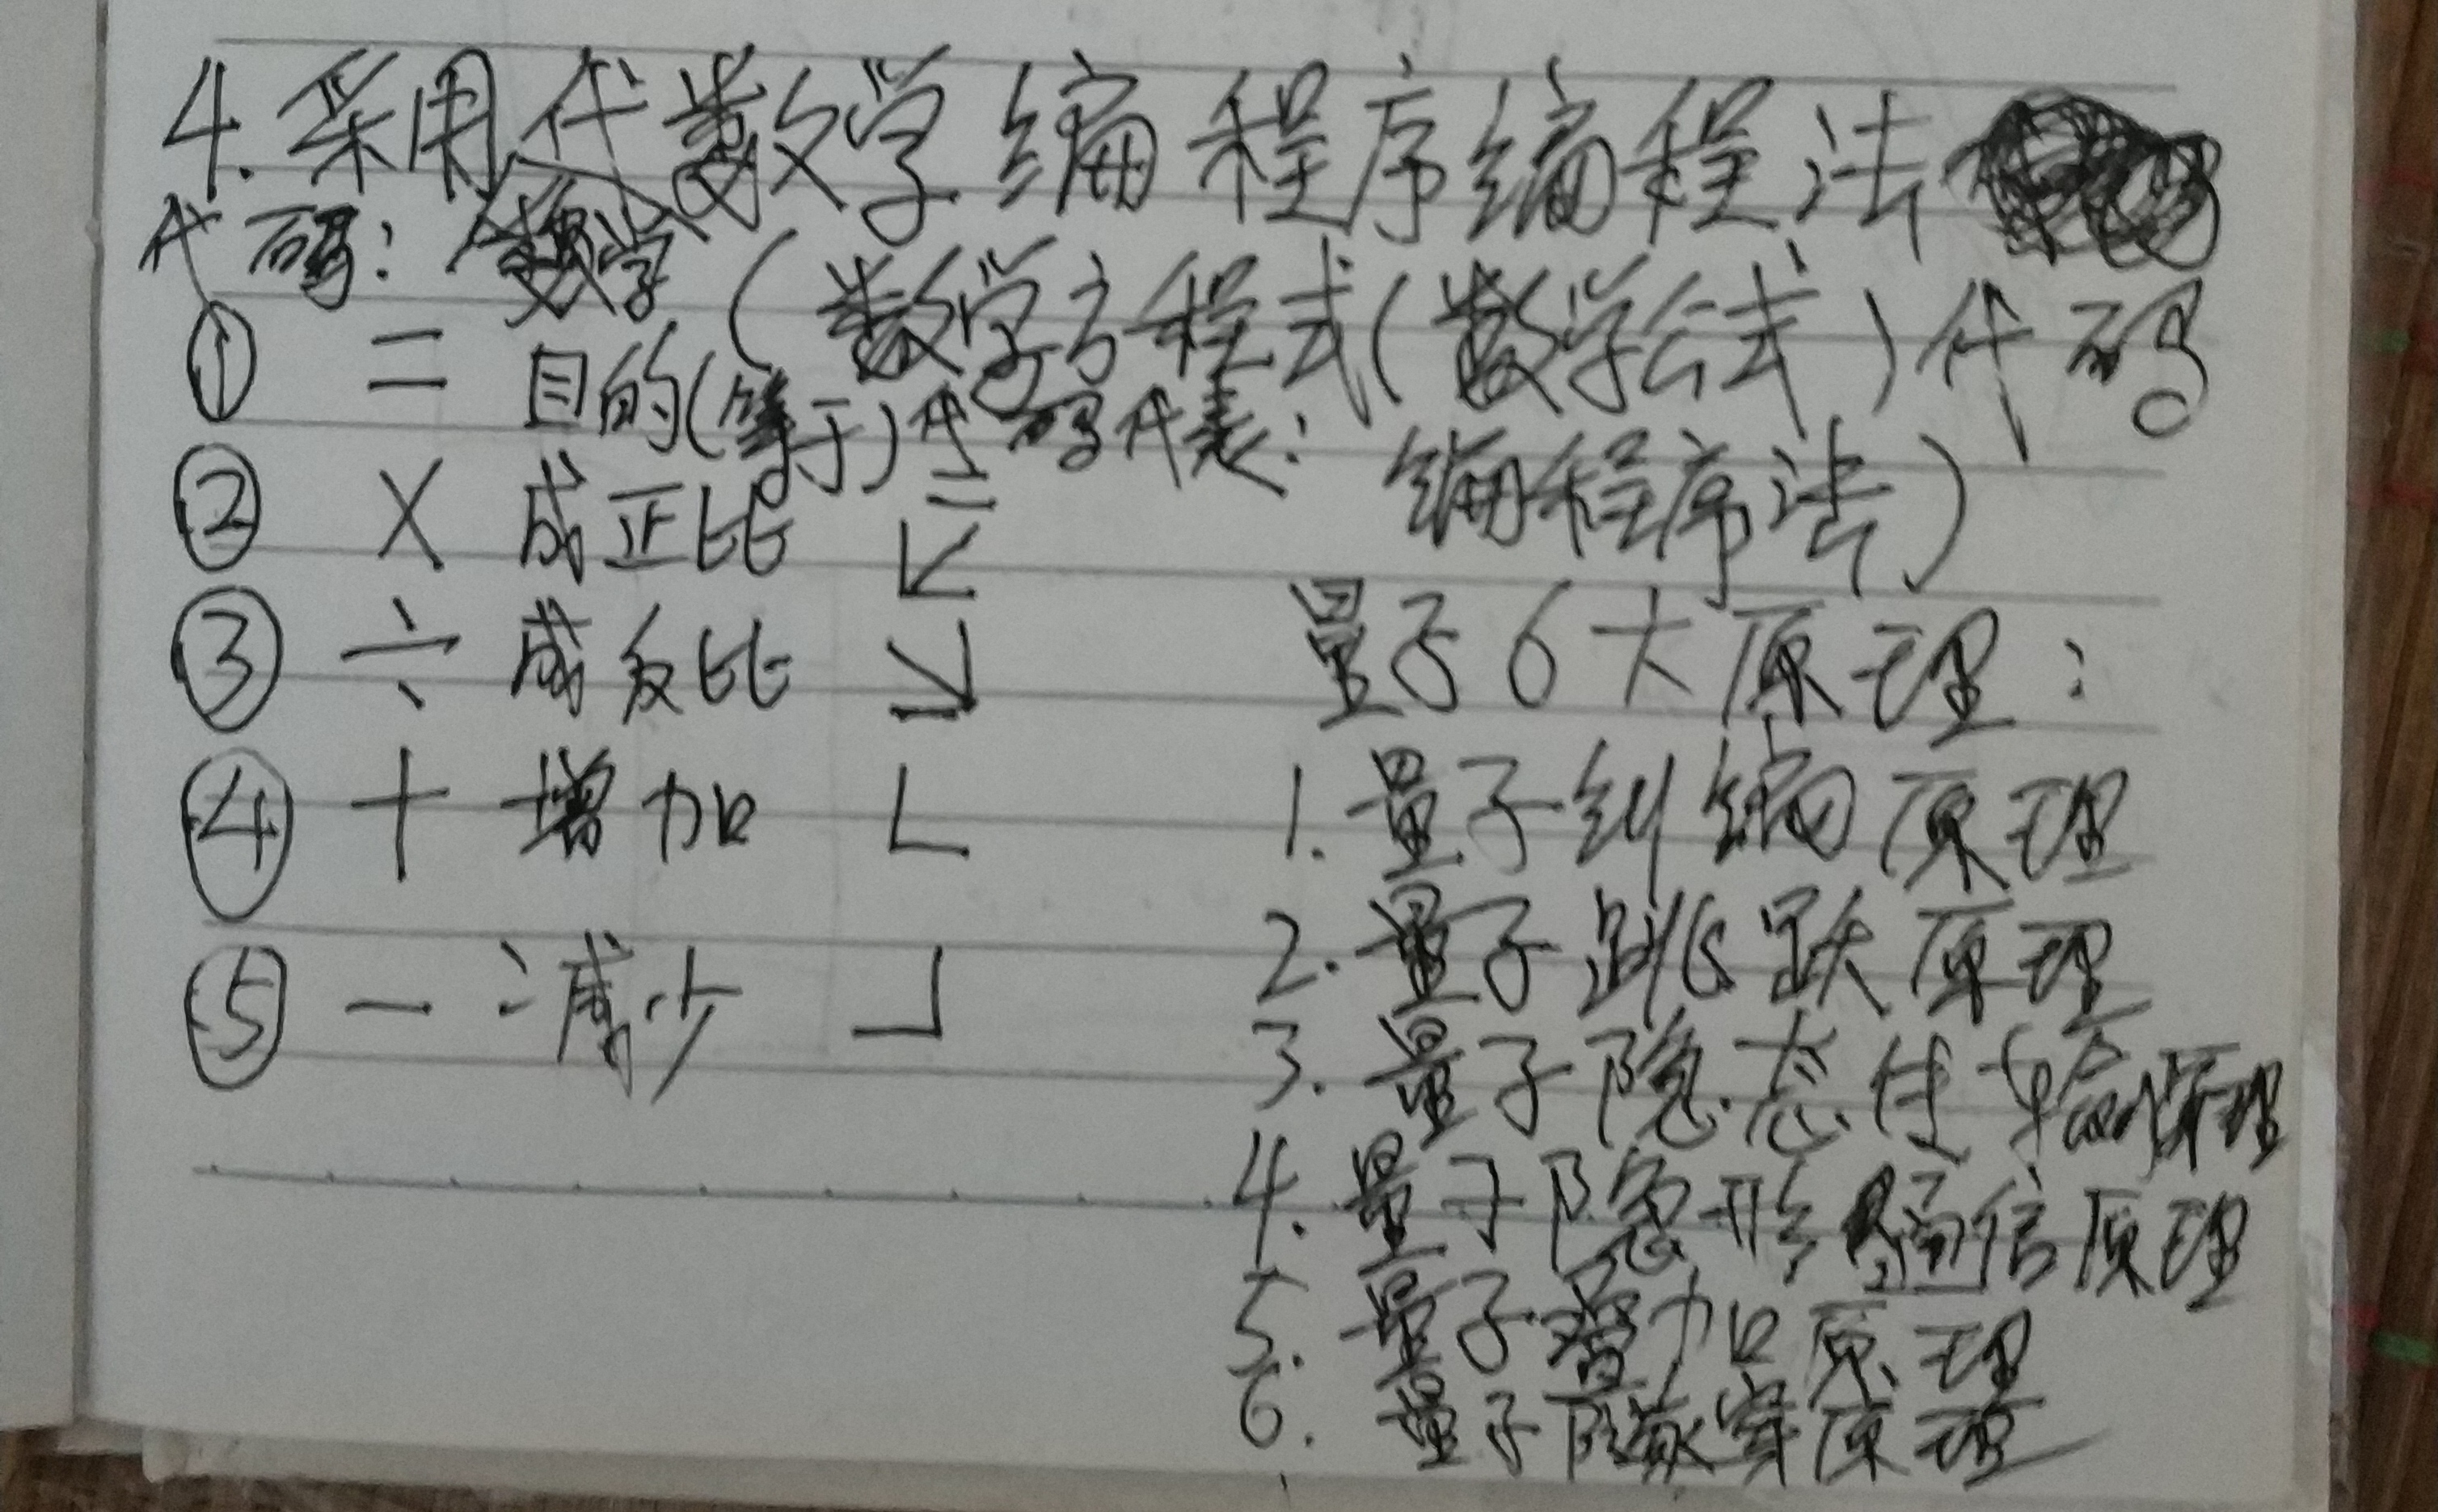 4.采用代数学编程序编程法
代码：数学
(数学方程式(数学公式)代码
编程序法)
① = 目的(等于)代码代表：=
② × 成正比 ↙
③ ÷ 成反比 ↘
④ + 增加 ∟
⑤ — 减少 ┘
量子6大原理：
1.量子纠缠原理
2.量子跳跃原理
3.量子隐态传输原理
4.量子隐形通信原理
5.量子叠加原理
6.量子隧穿原理